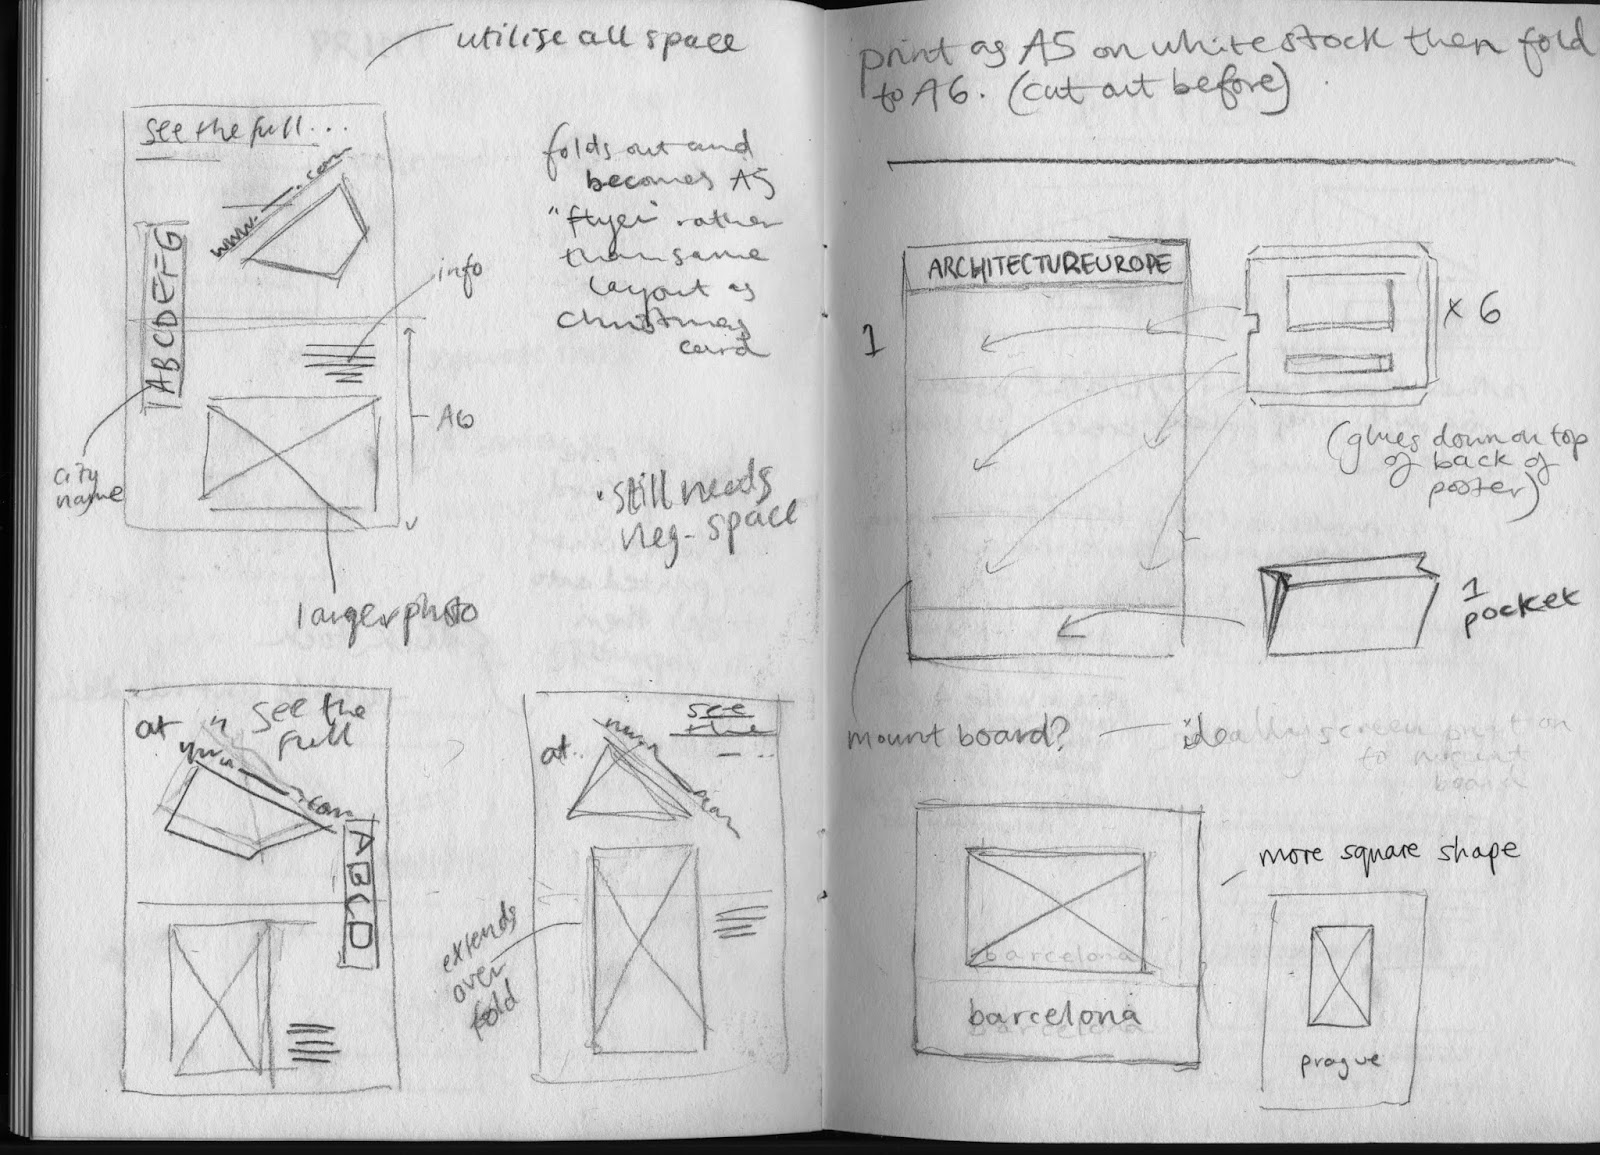 utilise all space
see the full...
www. .com
ABCDEFG
info
A6
city
name
larger photo
folds out and
becomes A5
"flyer" rather
than same
layout as
christmas
card
• still needs
neg- space
at
see the
full
www
.com
ABCD
at..
see
the
www
com
extends
over
fold
print as A5 on white stock then fold
to A6. (cut out before)
1
ARCHITECTUREUROPE
x 6
(glues down on top
of back of
poster)
1
pocket
mount board?
ideally screen print on
to mount
board
barcelona
barcelona
more square shape
prague